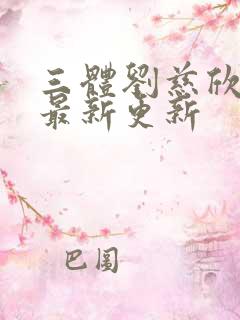 三體劉慈欣
最新更新
巴圖